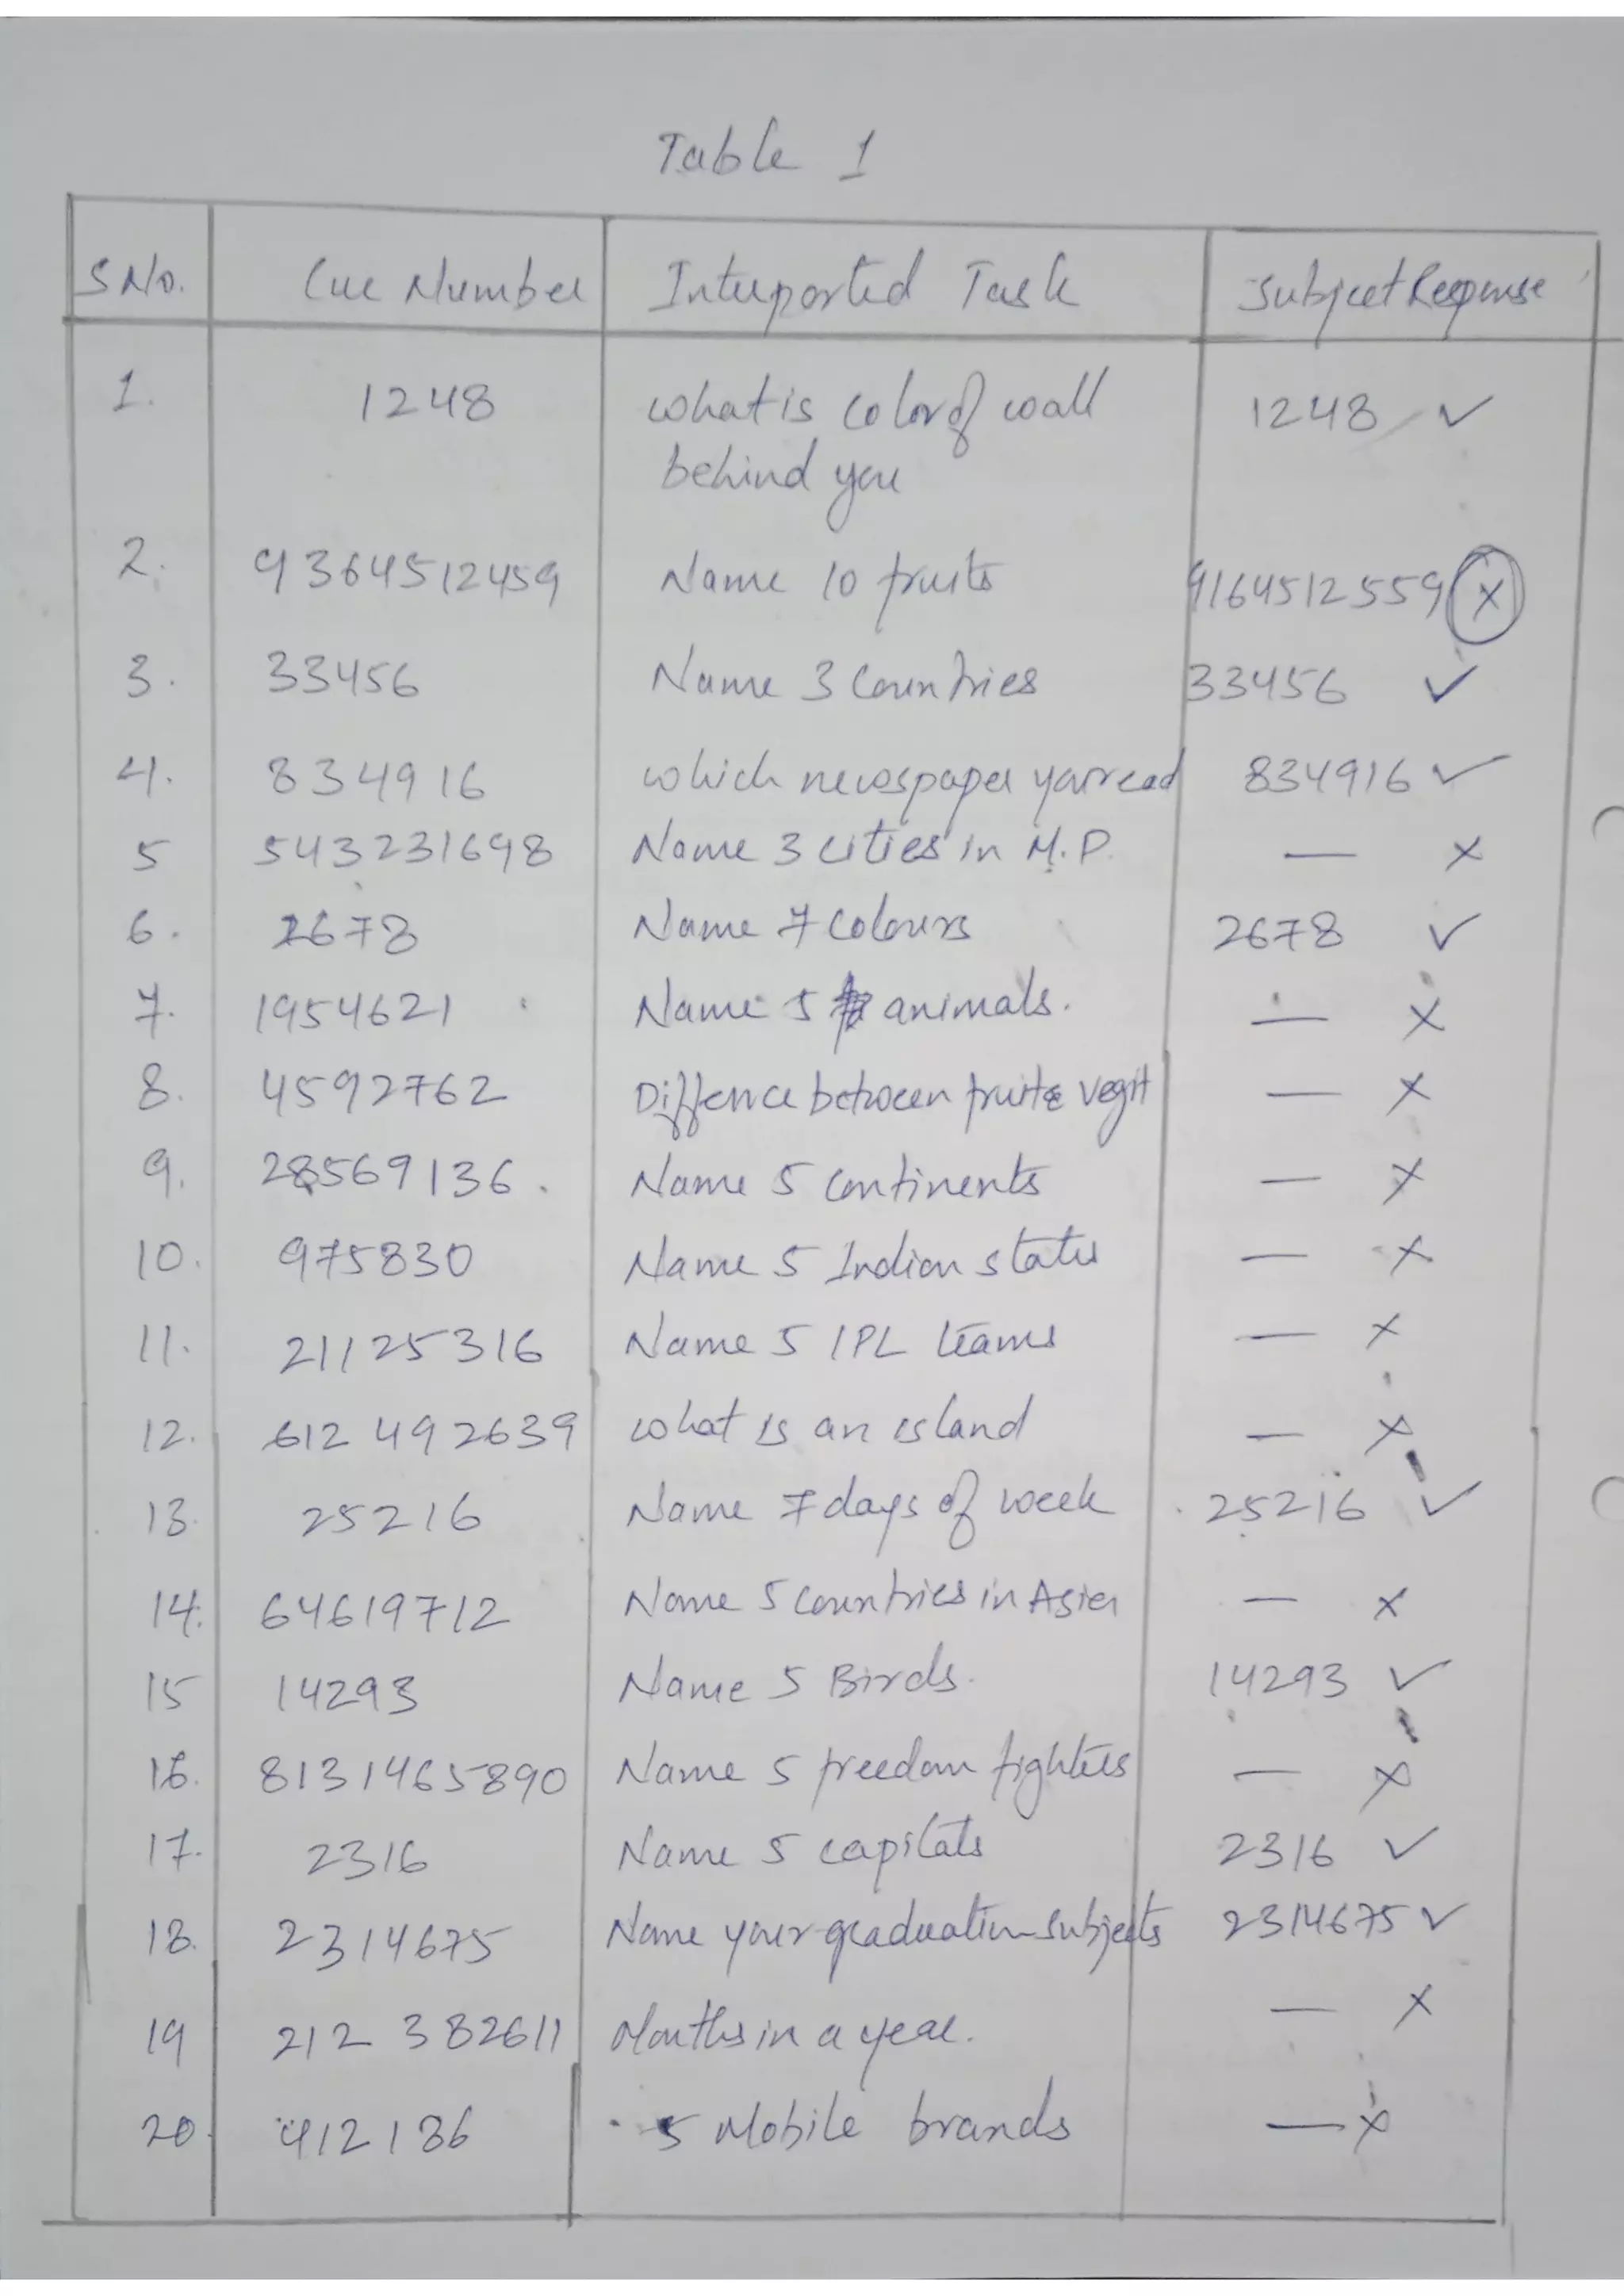 Table 1
S No. Cue Number Interported Task Subject Response
1. 1248 what is color of wall 1248 ✓
behind you
2. 9364512459 Name 10 fruits 9164512559 ×
3. 33456 Name 3 Countries 33456 ✓
4. 834916 which newspaper you read 834916 ✓
5 543231698 Name 3 cities in M.P. — ×
6. 2678 Name 7 Colours 2678 ✓
7. 1954621 Name 5 animals. — ×
8. 4592762 Diffence between fruit & vegit — ×
9. 28569136. Name 5 continents — ×
10. 975830 Name 5 Indian states — ×
11. 21125316 Name 5 IPL teams — ×
12. 612 492639 what is an island — ×
13. 25216 Name 7 days of week 25216 ✓
14. 64619712 Name 5 countries in Asia — ×
15 14293 Name 5 Birds. 14293 ✓
16. 8131465890 Name 5 freedom fighters — ×
17. 2316 Name 5 capitals 2316 ✓
18. 2314675 Name your graduation subjects 2314675 ✓
19 212 382611 Months in a year. — ×
20. 412136 5 Mobile brands — ×